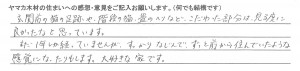 ヤマカ木材の住まいへの感想・意見をご記入お願いします。(何でも結構です)
玄関前の桶の足跡や、階段の桶・畳のへりなど、こだわった部分は見る度に
良かったなと思っています。
まだ1年しか経っていませんが、すっかりなじんで、ずっと前から住んでいたような
感覚になったりもします。大好きな家です。